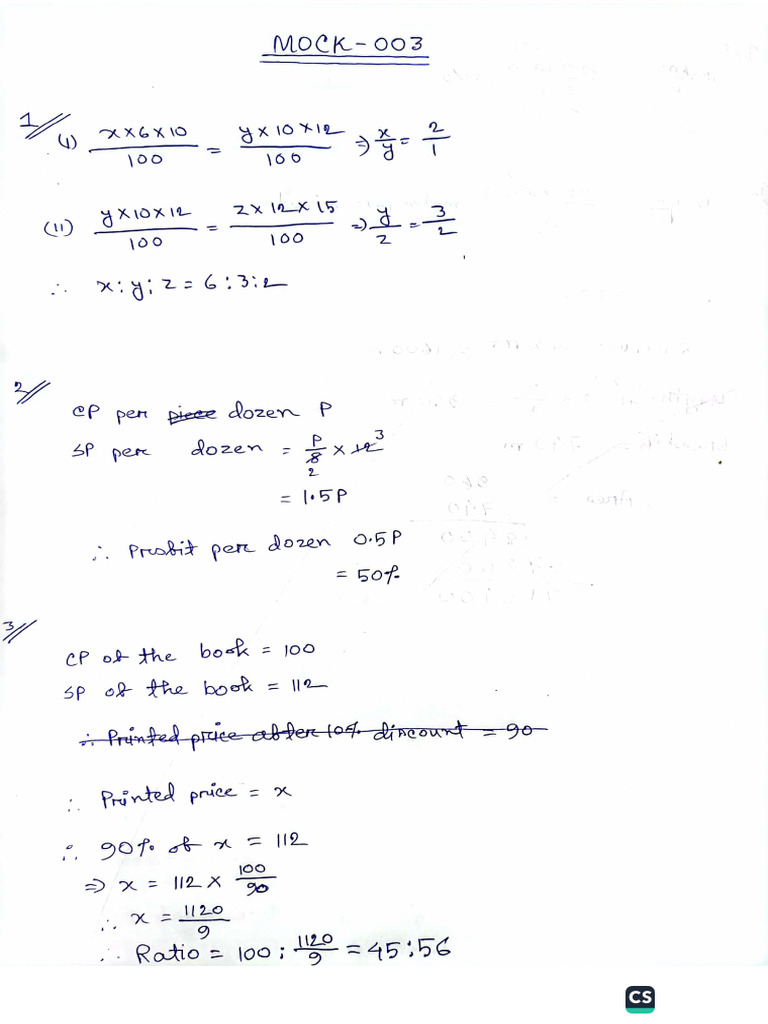 MOCK-003
1
(I) x×6×10/100 = y×10×12/100 ⇒ x/y = 2/1
(II) y×10×12/100 = z×12×15/100 ⇒ y/z = 3/2
∴ x:y:z = 6:3:2
2
CP per piece dozen P
SP per dozen = P/8 2 × 12 3
= 1.5P
∴ Profit per dozen 0.5P
= 50%
3
CP of the book = 100
SP of the book = 112
∴ Printed price after 10% discount = 90
∴ Printed price = x
∴ 90% of x = 112
⇒ x = 112 × 100/90
∴ x = 1120/9
∴ Ratio = 100 : 1120/9 = 45:56
CS